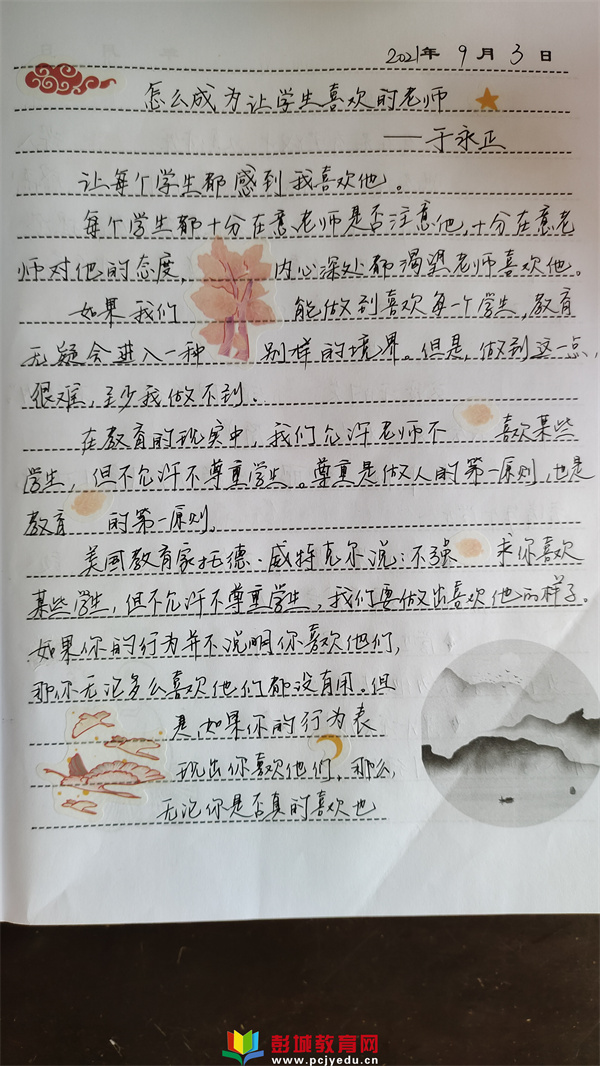 2021年 9月 3日
怎么成为让学生喜欢的老师
——于永正
让每个学生都感到我喜欢他。
每个学生都十分在意老师是否注意他,十分在意老
师对他的态度, 内心深处都渴望老师喜欢他。
如果我们 能做到喜欢每一个学生,教育
无疑会进入一种 别样的境界。但是,做到这一点,
很难,至少我做不到.
在教育的现实中,我们允许老师不 喜欢某些
学生,但不允许不尊重学生。尊重是做人的第一原则,也是
教育 的第一原则。
美国教育家托德·威特克尔说:不强 求你喜欢
某些学生,但不允许不尊重学生,我们要做出喜欢他的样子。
如果你的行为并不说明你喜欢他们,
那你无论多么喜欢他们都没有用。但
是,如果你的行为表
现出你喜欢他们,那么,
无论你是否真的喜欢他
彭城教育网
www.pcjyedu.cn